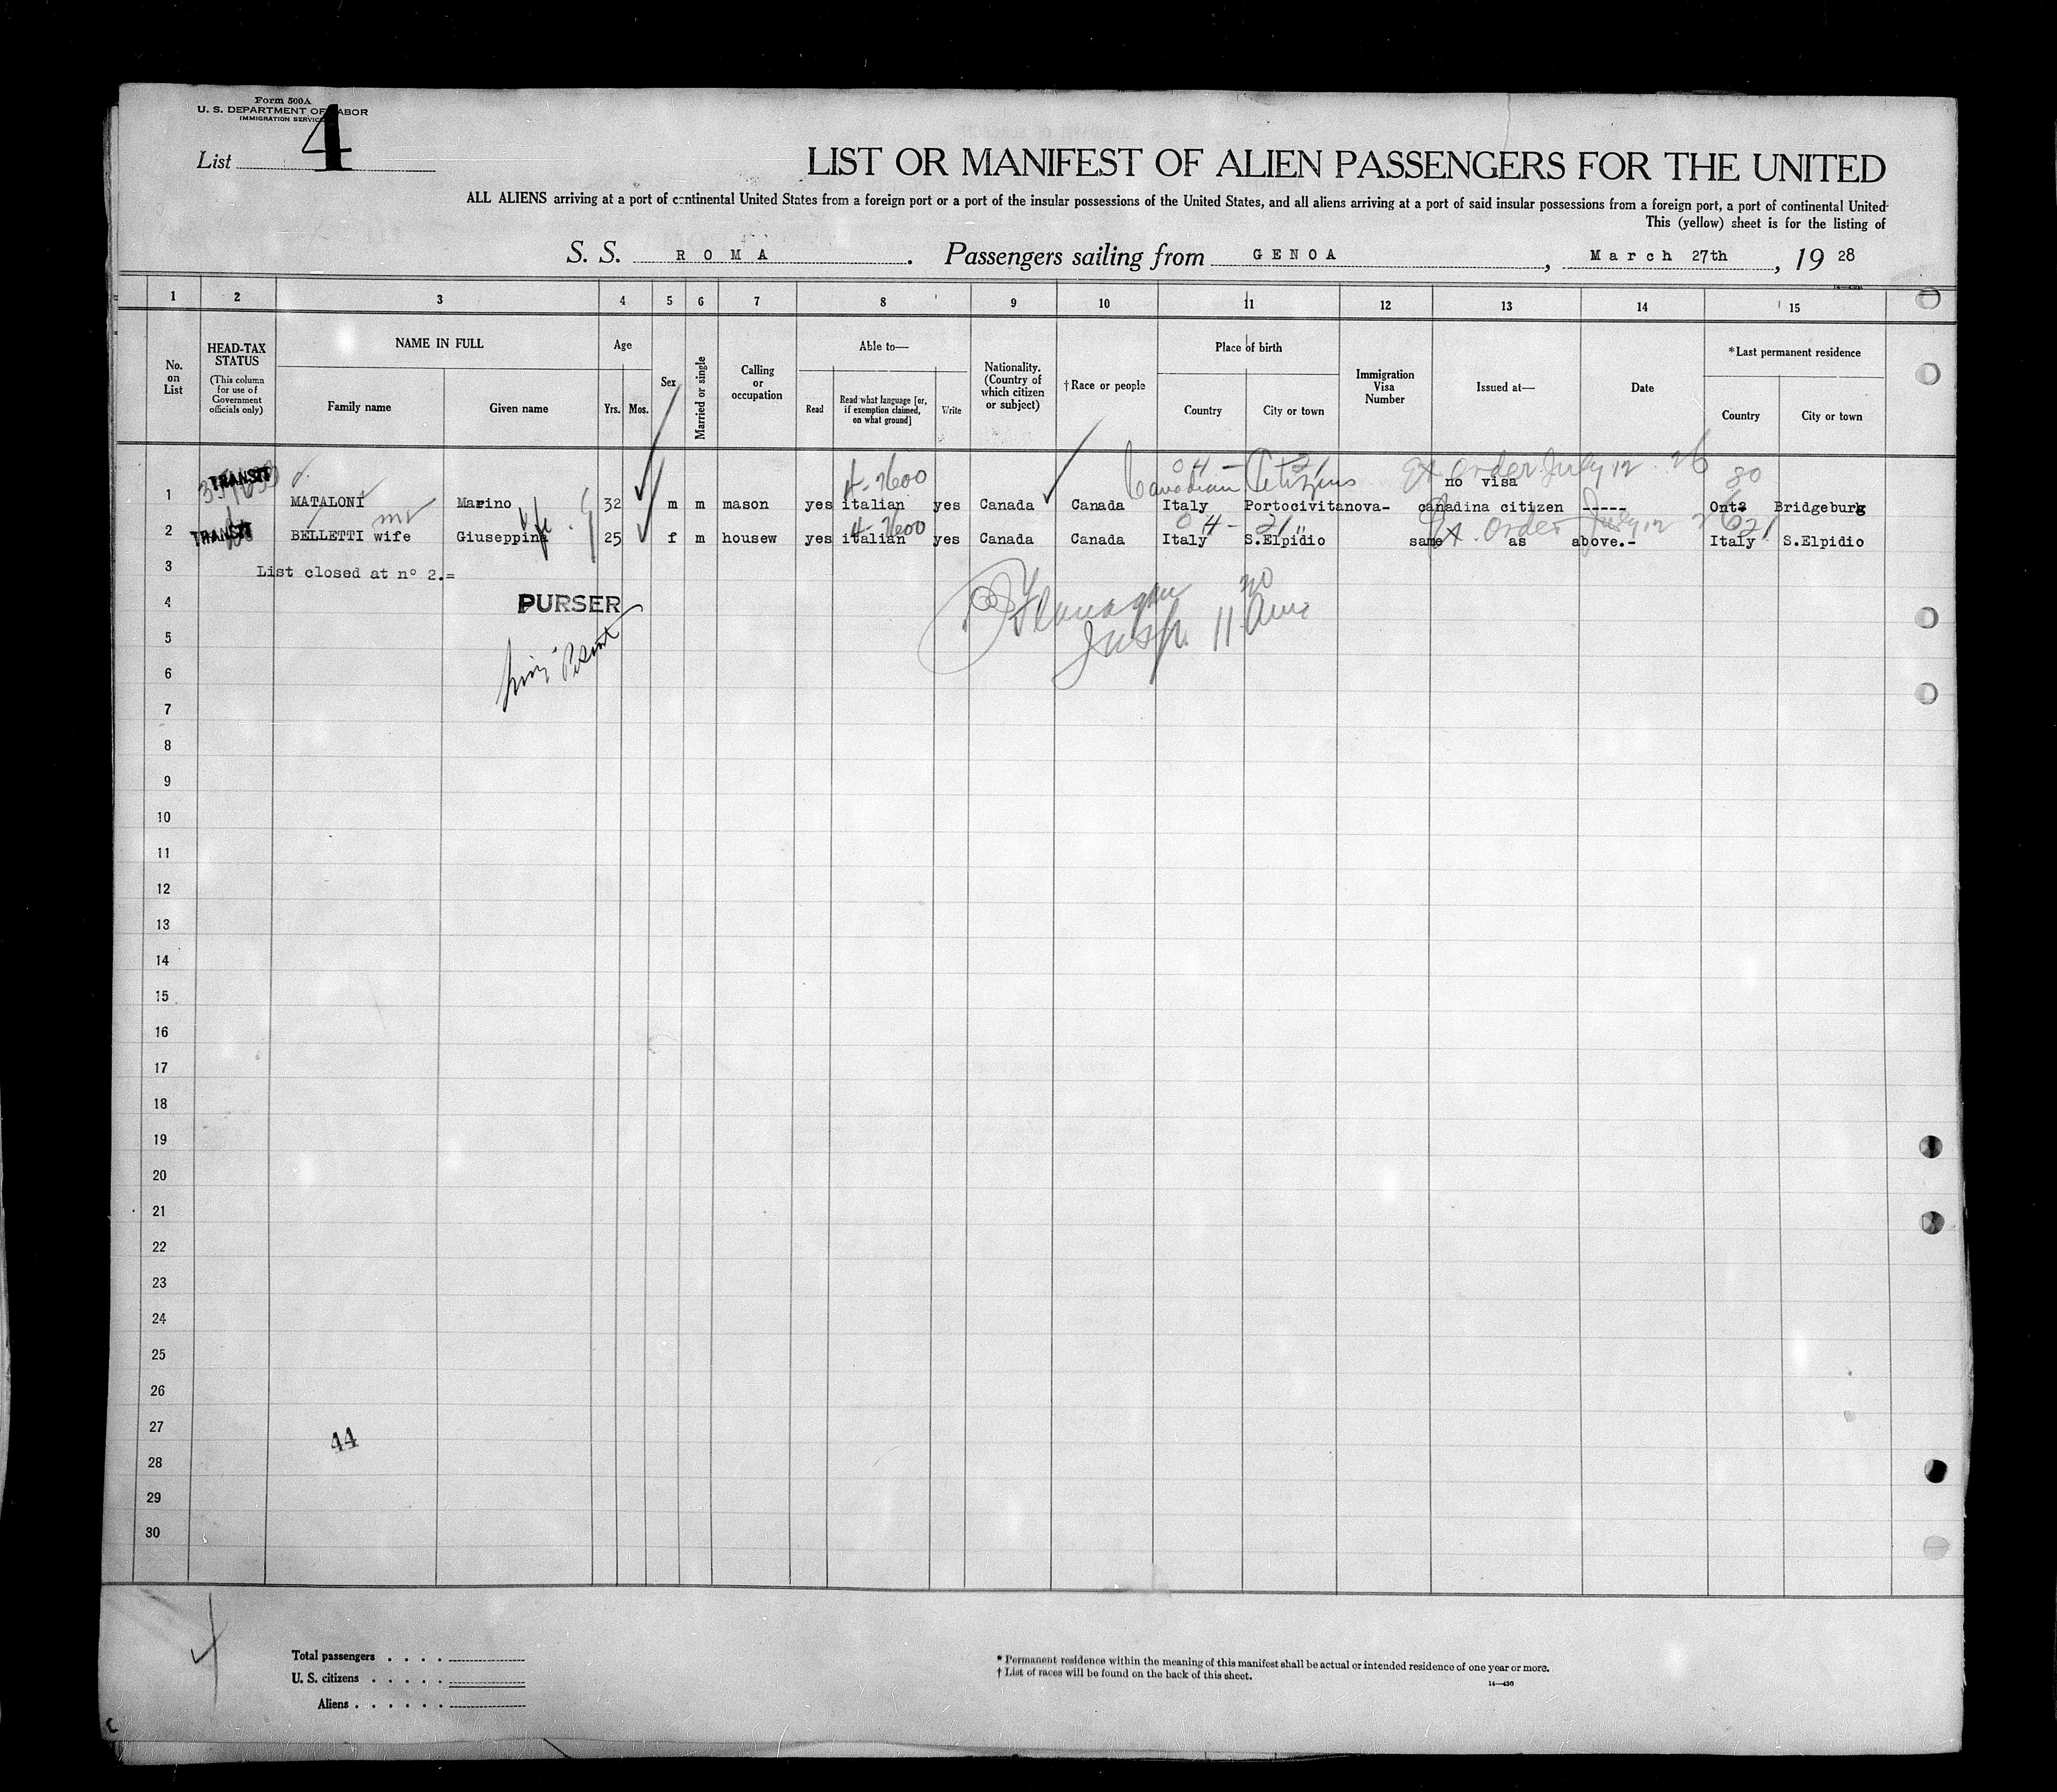 Form 500A
U. S. DEPARTMENT OF LABOR
IMMIGRATION SERVICE
List 4
LIST OR MANIFEST OF ALIEN PASSENGERS FOR THE UNITED
ALL ALIENS arriving at a port of continental United States from a foreign port or a port of the insular possessions of the United States, and all aliens arriving at a port of said insular possessions from a foreign port, a port of continental United
This (yellow) sheet is for the listing of
S. S. ROMA. Passengers sailing from GENOA, March 27th, 19 28
1 2 3 4 5 6 7 8 9 10 11 12 13 14 15
No. on List
HEAD-TAX STATUS (This column for use of Government officials only)
NAME IN FULL
Family name
Given name
Age
Yrs. Mos.
Sex
Married or single
Calling or occupation
Able to—
Read
Read what language [or, if exemption claimed, on what ground]
Write
Nationality. (Country of which citizen or subject)
†Race or people
Place of birth
Country
City or town
Immigration Visa Number
Issued at—
Date
*Last permanent residence
Country
City or town
4-7600 Canadian Citizens Ex order July 12 26 80
no visa
1 TRANSIT MATALONI Marino 32 m m mason yes italian yes Canada Canada Italy Portocivitanova- canadina citizen ----- Bridgeburg
4-7600 Ex. Order July 12 26
2 TRANSIT BELLETTI wife Giuseppina 25 f m housew yes italian yes Canada Canada Italy S.Elpidio same as above.- Italy S.Elpidio
3 List closed at nº 2.=
4 PURSER
Flanagan
Insp.
5
6
7
8
9
10
11
12
13
14
15
16
17
18
19
20
21
22
23
24
25
26
27
44
28
29
30
Total passengers . . . .
U. S. citizens . . . . .
Aliens . . . . . .
* Permanent residence within the meaning of this manifest shall be actual or intended residence of one year or more.
† List of races will be found on the back of this sheet.
14—430